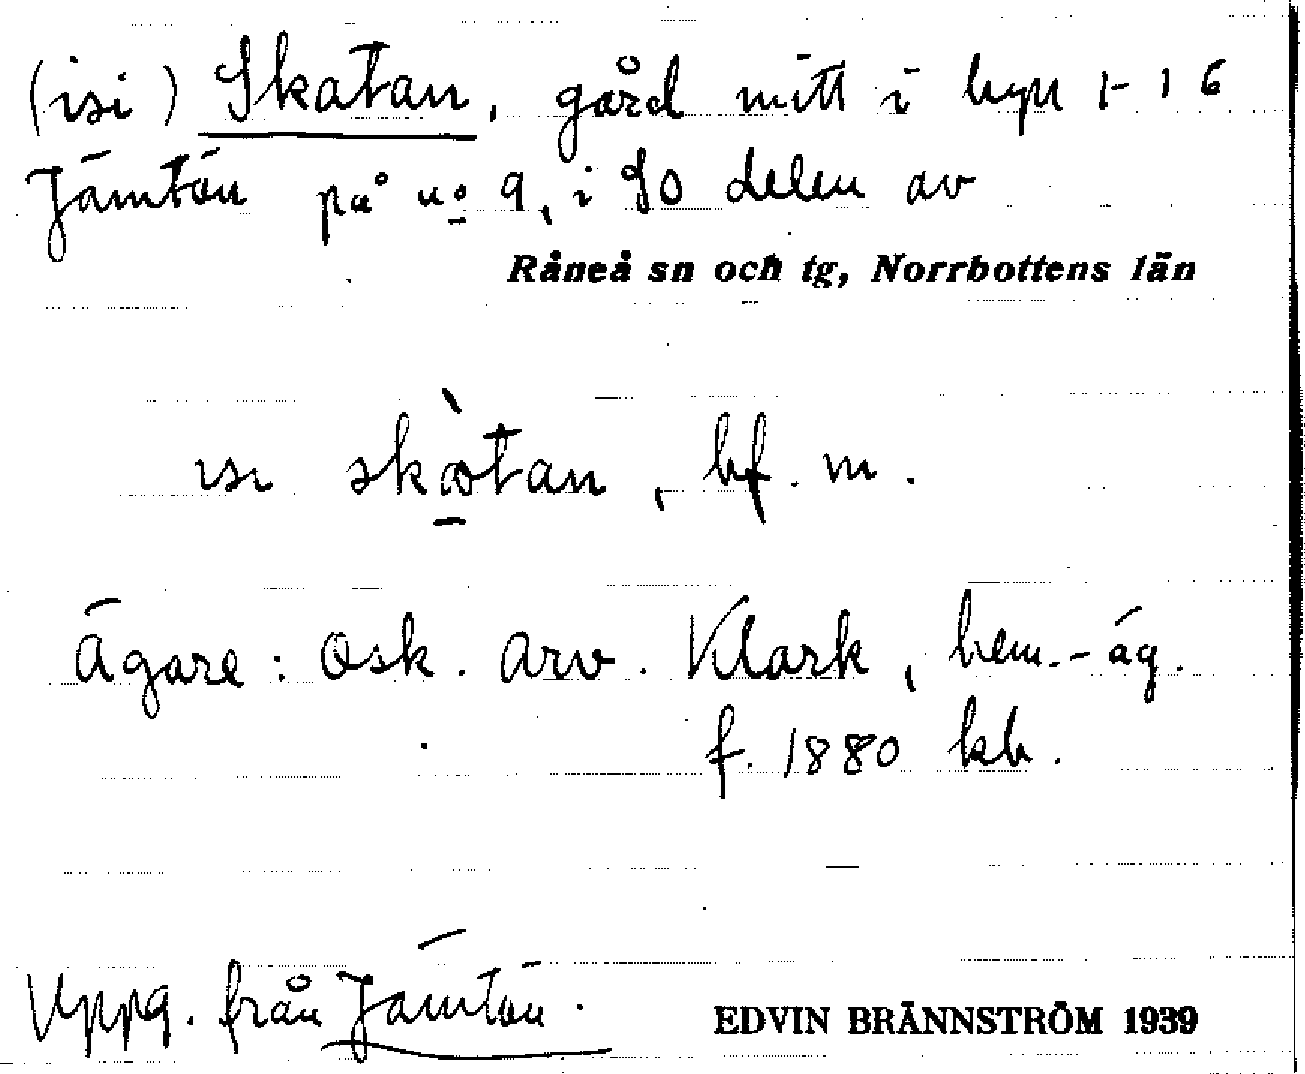 (isi) Skatan, gård mitt i byn 1-16
Jämtön på no 9, i SO delen av
Råneå sn och tg, Norrbottens län
isi skὰtan, bf. m.
Ägare: Osk. Arv. Klark, hem.-äg.
f. 1880 kb.
Uppg. från Jämtön.
EDVIN BRÄNNSTRÖM 1939